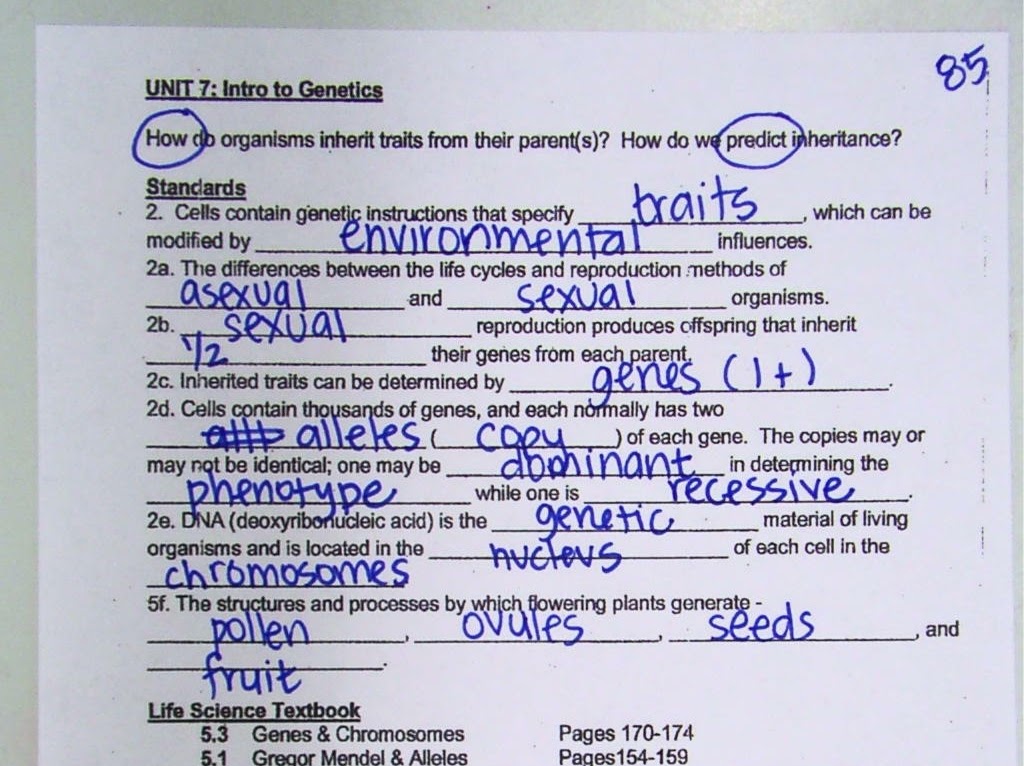 85
UNIT 7: Intro to Genetics
How do organisms inherit traits from their parent(s)? How do we predict inheritance?
Standards
2. Cells contain genetic instructions that specify traits, which can be
modified by environmental influences.
2a. The differences between the life cycles and reproduction methods of
asexual and sexual organisms.
2b. sexual reproduction produces offspring that inherit
1/2 their genes from each parent.
2c. Inherited traits can be determined by genes (1+).
2d. Cells contain thousands of genes, and each normally has two
alleles (copy) of each gene. The copies may or
may not be identical; one may be dominant in determining the
phenotype while one is recessive.
2e. DNA (deoxyribonucleic acid) is the genetic material of living
organisms and is located in the nucleus of each cell in the
chromosomes
5f. The structures and processes by which flowering plants generate -
pollen, ovules, seeds, and
fruit.
Life Science Textbook
5.3 Genes & Chromosomes Pages 170-174
5.1 Gregor Mendel & Alleles Pages154-159